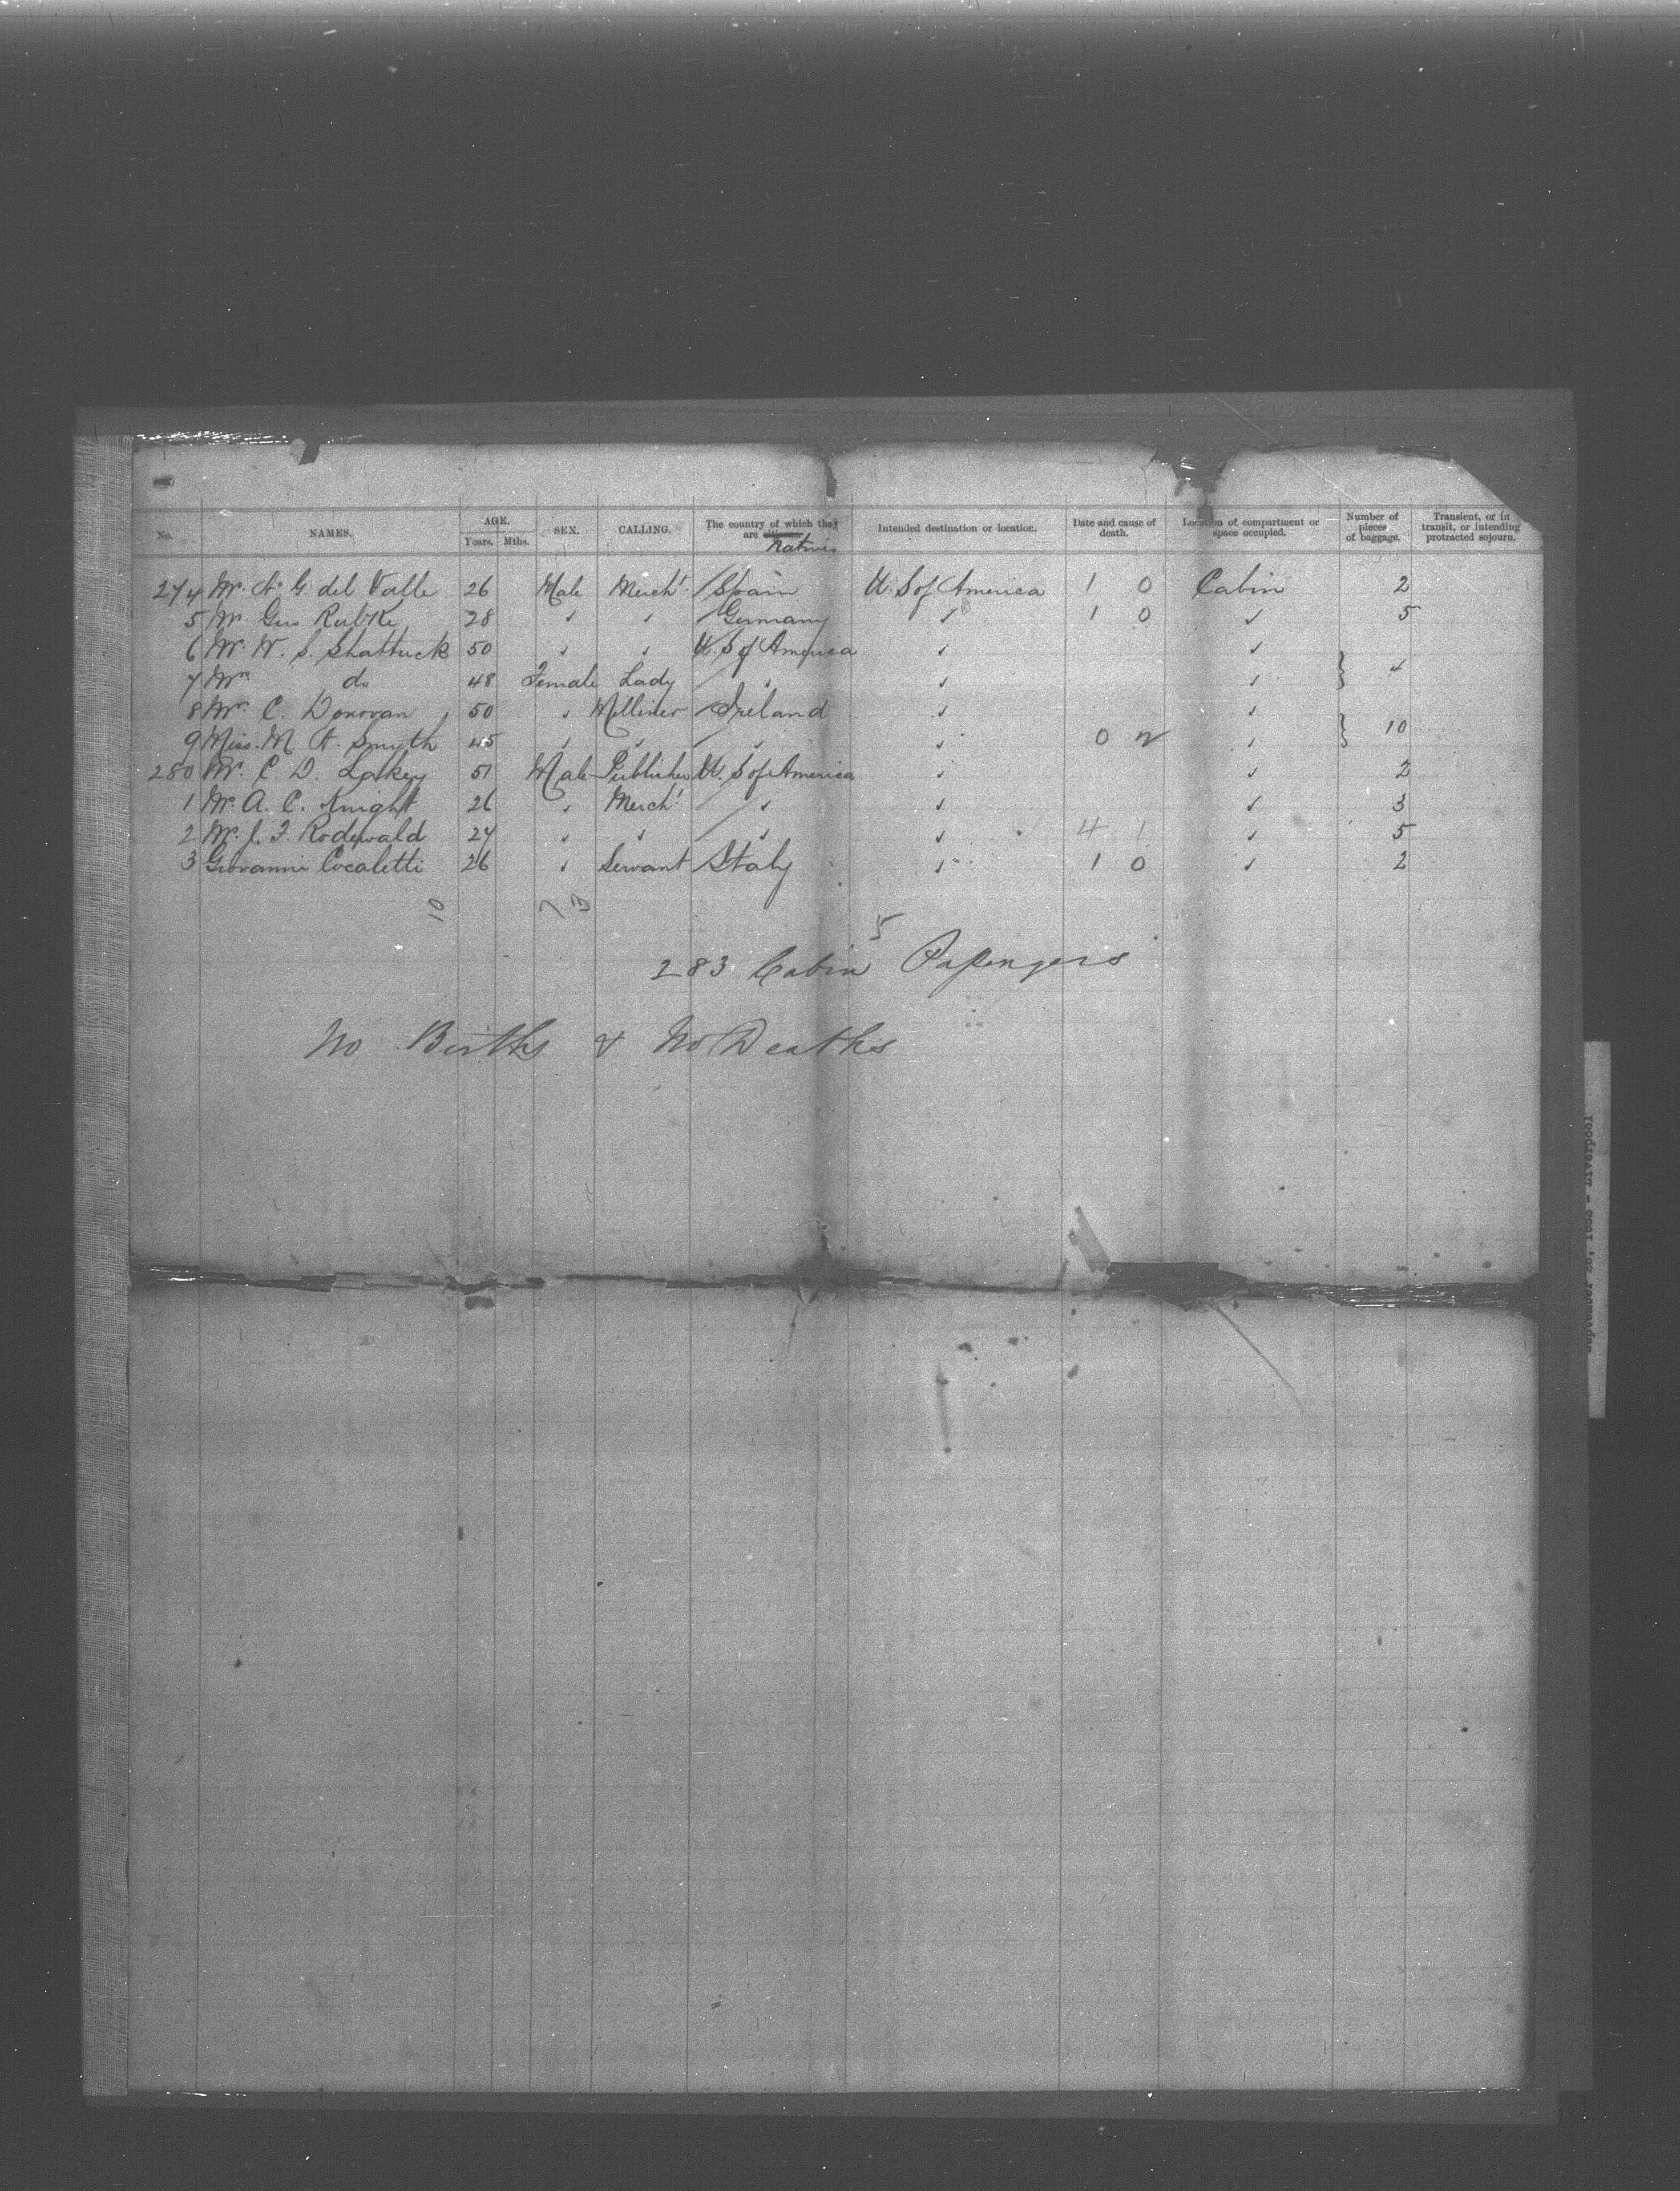 No. NAMES. AGE. Years. Mths. SEX. CALLING. The country of which they are citizens Natives Intended destination or location. Date and cause of death. Location of compartment or space occupied. Number of pieces of baggage. Transient, or in transit, or intending protracted sojourn.
274 Mr. A. G. del Valle 26 Male Mercht Spain U. S of America 1 0 Cabin 2
5 Mr Gus Rubke 28 " " Germany " 1 0 " 5
6 Mr. W. S. Shattuck 50 " " U. S of America " "
7 Mrs do 48 Female Lady " " " 4
8 Mrs C. Donovan 50 " Milliner Ireland " "
9 Miss. M. A. Smyth 45 " " " " 0 " 10
280 Mr. C. D. Lakey 51 Male Publisher U. S of America " " 2
1 Mr. A. C. Knight 26 " Mercht " " " 3
2 Mr. J. F. Rodewald 24 " " " " 4 1 " 5
3 Giovanni Cocaletti 26 " Servant Italy " 1 0 " 2
10 7 3
5
283 Cabin Passengers
No Births & No Deaths
- Liverpool